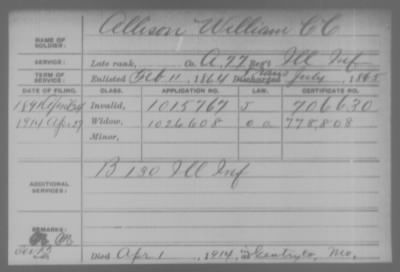 NAME OF SOLDIER: Allison William C C
SERVICE: Late rank, Co. A, 77 Reg't Ill Inf
TERM OF SERVICE: Enlisted Feb 11, 1864 Discharged July, 1865
DATE OF FILING. CLASS. APPLICATION NO. LAW. CERTIFICATE NO.
1891 Invalid, 1015767 J 706630
1914 Apr 29 Widow, 1026608 778,808
Minor,
ADDITIONAL SERVICES: B 130 Ill Inf
REMARKS:
Died Apr 1, 1914, at Gentry Co, Mo.